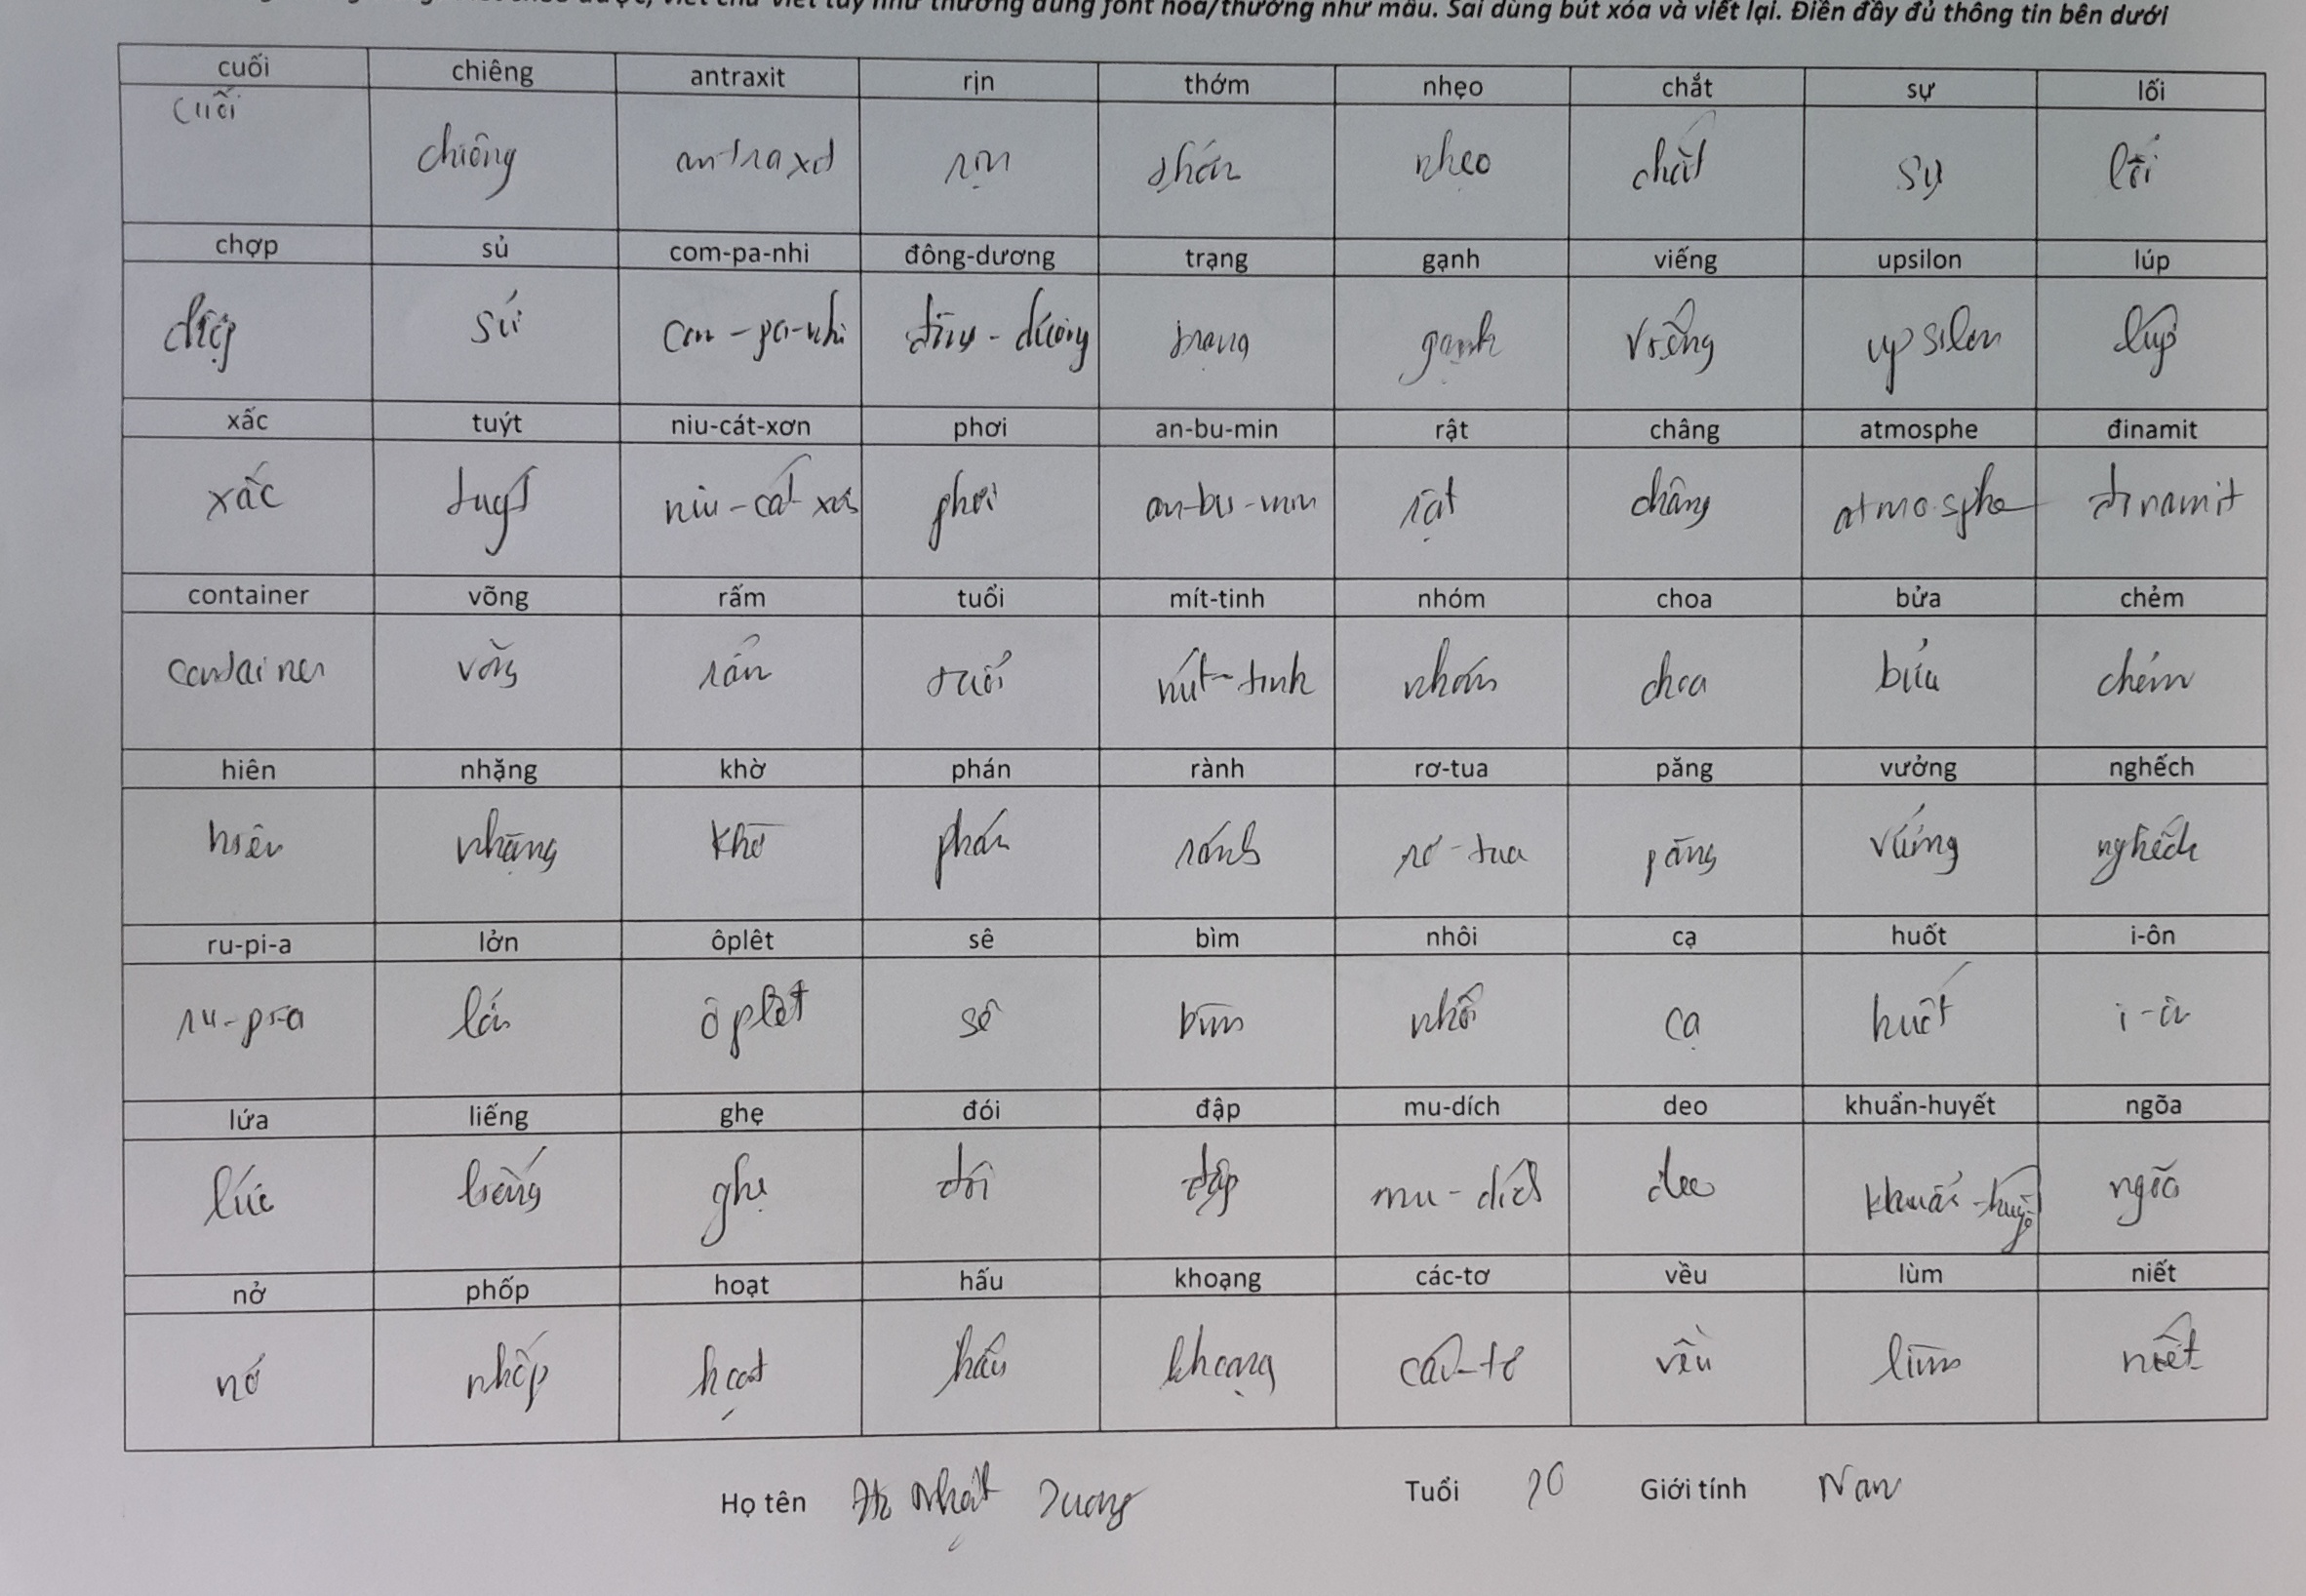 viết chữ viết tay như thường dùng font hoa/thường như mẫu. Sai dùng bút xóa và viết lại. Điền đầy đủ thông tin bên dưới
cuối chiêng antraxit rịn thớm nhẹo chắt sự lối
cuối chiêng antraxit rịn thớm nhẹo chắt sự lối
chợp sủ com-pa-nhi đông-dương trạng gạnh viếng upsilon lúp
chợp sủ com-pa-nhi đông-dương trạng gạnh viếng upsilon lúp
xấc tuýt niu-cát-xơn phơi an-bu-min rật châng atmosphe đinamit
xấc tuýt niu-cát-xơn phơi an-bu-min rật châng atmosphe đinamit
container võng rấm tuổi mít-tinh nhóm choa bửa chẻm
container võng rấm tuổi mít-tinh nhóm choa bửa chẻm
hiên nhặng khờ phán rành rơ-tua păng vưởng nghếch
hiên nhặng khờ phán rành rơ-tua păng vưởng nghếch
ru-pi-a lởn ôplêt sê bìm nhôi cạ huốt i-ôn
ru-pi-a lởn ôplêt sê bìm nhôi cạ huốt i-ôn
lứa liếng ghẹ đói đập mu-dích deo khuẩn-huyết ngõa
lứa liếng ghẹ đói đập mu-dích deo khuẩn-huyết ngõa
nở phốp hoạt hấu khoạng các-tơ vều lùm niết
nở nhốp hoạt hấu khoạng các-tơ vều lùm niết
Họ tên Nhật Dương Tuổi 20 Giới tính Nam